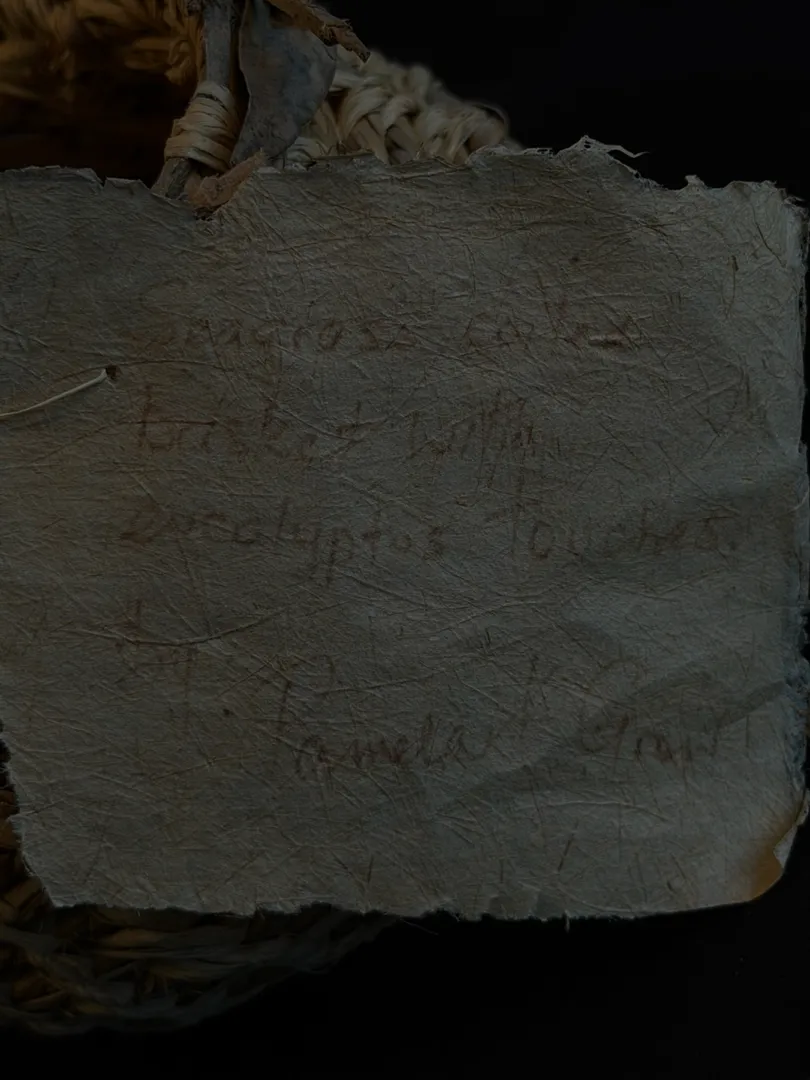 Snagrass coiled
basket with
eucalyptos Touches.
Pamela